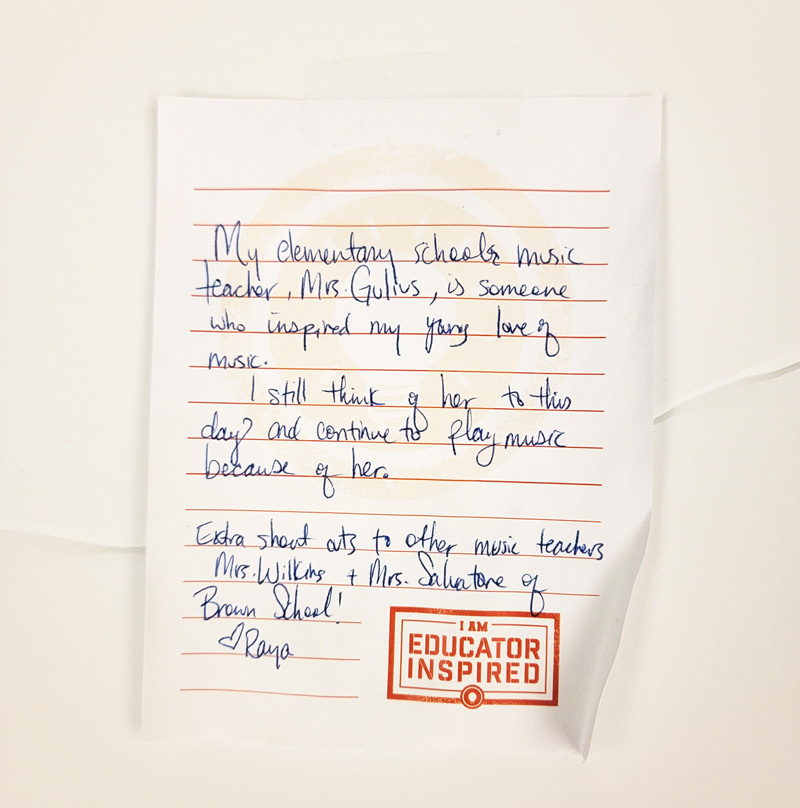 My elementary school's music
teacher, Mrs. Gulius, is someone
who inspired my young love of
music.
I still think of her to this
day and continue to play music
because of her.
Extra shout outs to other music teachers
Mrs. Wilkins + Mrs. Salvatore of
Brown School!
♡Raya
I AM
EDUCATOR
INSPIRED